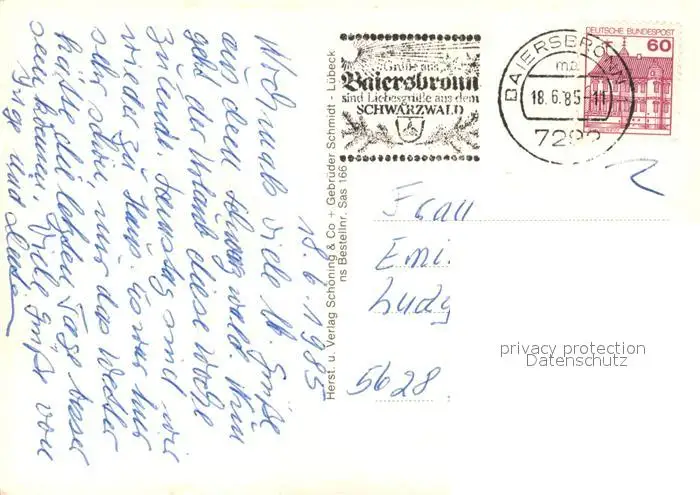 18.6.1985
Nochmals viele lb. Grüße
aus dem Schwarzwald. Nun
geht der Urlaub diese Woche
zu Ende. Samstag sind wir
wieder zu Haus. Es war hier
sehr schön, nur das Wetter
hätte die letzten Tage besser
sein können. Viele Grüße von
Inge und
Herst. u. Verlag Schöning & Co + Gebrüder Schmidt - Lübeck
ns Bestellnr. Sas 166
Grüße aus
Baiersbronn
sind Liebesgrüße aus dem
SCHWARZWALD
BAIERSBRONN
ma
18.6.85-11
729
DEUTSCHE BUNDESPOST
60
Frau
Emi
Ludg
5628
privacy protection
Datenschutz